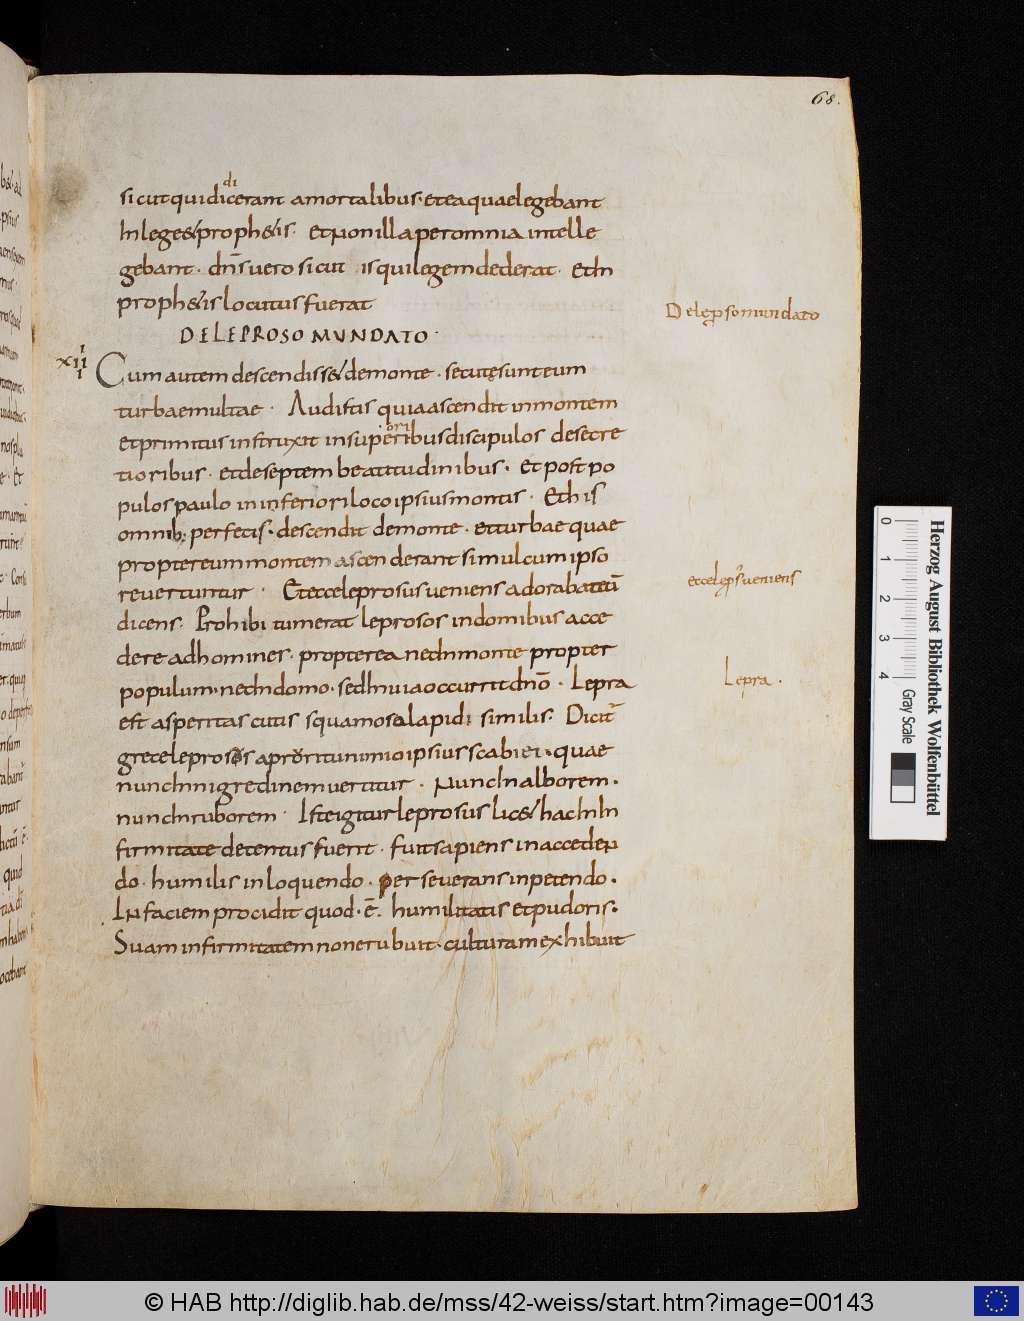 68.
di
sicut qui dicerant amortalibus· et ea quae legebant
In lege & proph&is· et non illa per omnia intelle
gebant· dn̄s uero sicut is qui legem dederat· et In
proph&is locutus fuerat
De lep̱so mundato
DE LEPROSO MUNDATO·
xiii
Cum autem descendiss& demonte· secutę sunt eum
turbae multae· Audistis quia ascendit in montem
ori
et primitus instruxit in superibus discipulos desecre
tioribus· et deseptem beatitudinibus· et post po
pulos paulo in inferiori loco ipsius montis· Et his
omnib; perfectis· descendit demonte· et turbae quae
propter eum montem ascenderant simul cum ipso
reuertuntur· Et ecce leprosus ueniens adorabat eū
et ecce lep̱s ueniens
dicens· Prohibitum erat leprosos in domibus acce
dere ad homines· propterea nec In monte propter
populum· nec In domo· sed In uia occurrit dn̄o· Lepra
Lepra·
est asperitas cutis squamosa lapidi similis· Dicit̄
grece leprosos apruritu nimio ipsius scabiei· quae
nunc In nigredinem uertitur· Nunc In alborem·
nunc In ruborem· Iste igitur leprosus lic& hac In In
firmitate detentus fuerit· fuit sapiens in acceden
do· humilis in loquendo· perseuerans in petendo·
In faciem procidit quod· ē· humilitatis et pudoris·
Suam infirmitatem non erubuit· culturam exhibuit
Herzog August Bibliothek Wolfenbüttel
Gray Scale
0 1 2 3 4
© HAB http://diglib.hab.de/mss/42-weiss/start.htm?image=00143